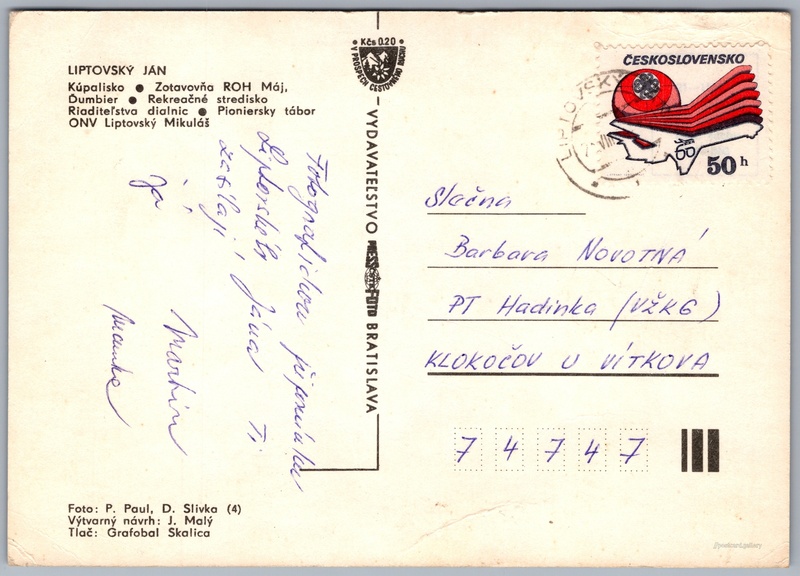 LIPTOVSKÝ JÁN
Kúpalisko ● Zotavovňa ROH Máj,
Ďumbier ● Rekreačné stredisko
Riaditeľstva dialnic ● Pioniersky tábor
ONV Liptovský Mikuláš
Kčs 0.20
V PROSPECH CESTOVNÉHO RUCHU
VYDAVATEĽSTVO PRESSFOTO BRATISLAVA
ČESKOSLOVENSKO
60
50 h
LIPTOVSKÝ
VIII
Fotografickou připomínku
Liptovského Jána Ti
zasílají
Já
Martin
mamka
Slečna
Barbara NOVOTNÁ
PT Hadinka (VŽKG)
KLOKOČOV U VÍTKOVA
7 4 7 4 7
Foto: P. Paul, D. Slivka (4)
Výtvarný návrh: J. Malý
Tlač: Grafobal Skalica